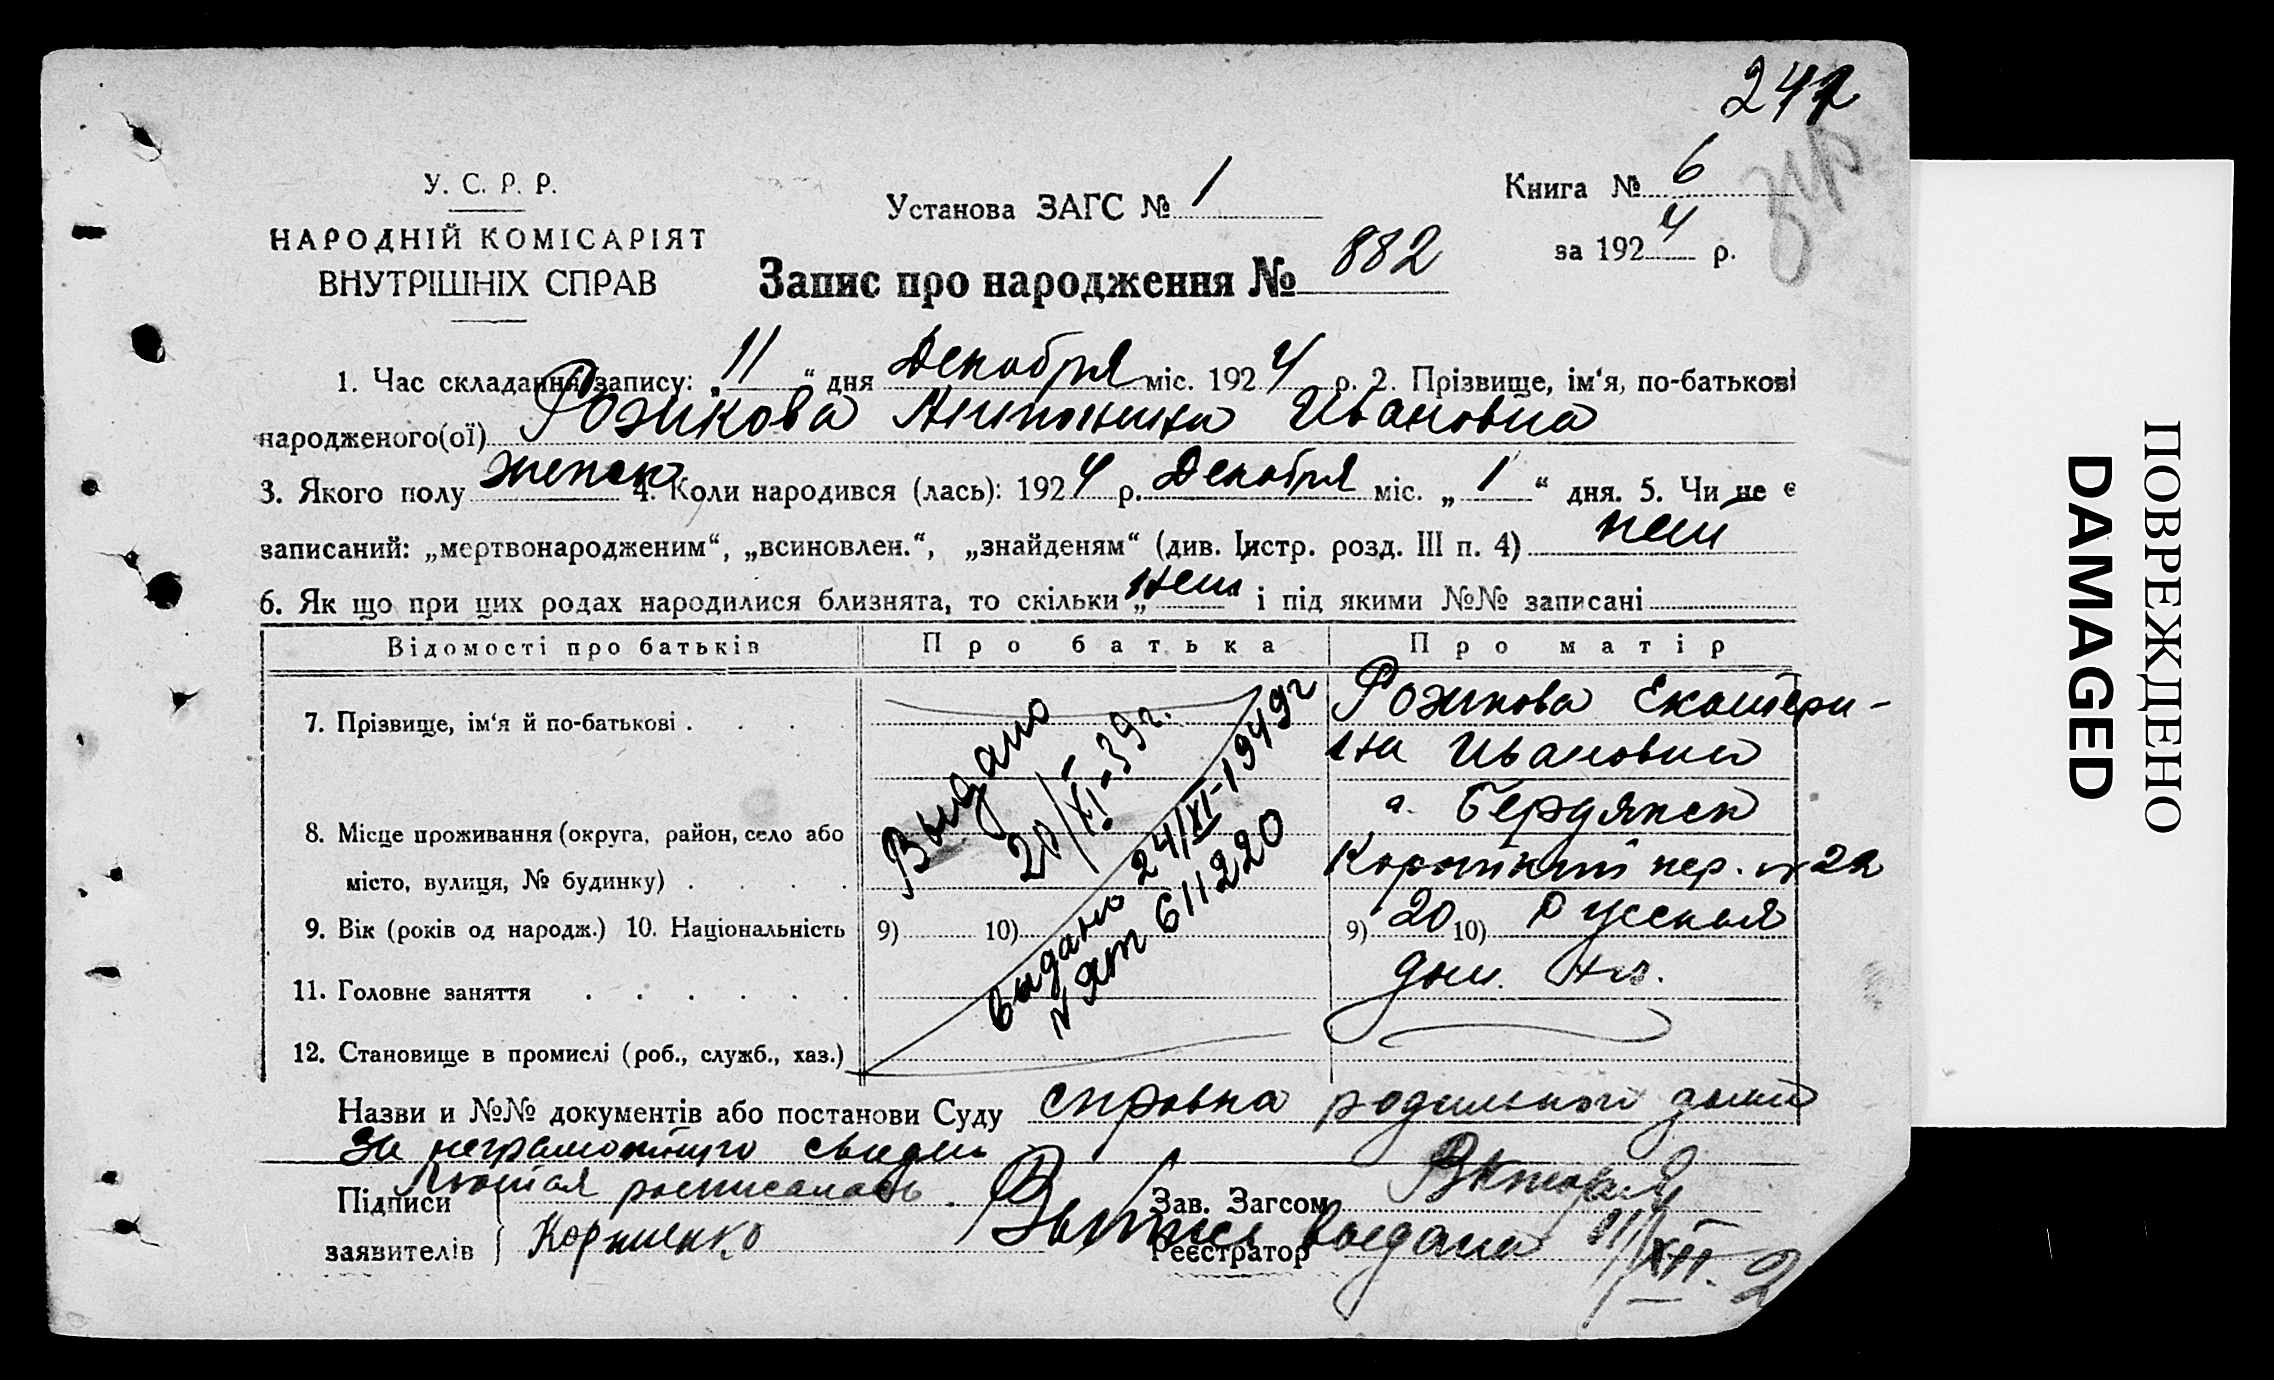 247
У. С. Р. Р.
НАРОДНІЙ КОМІСАРІЯТ
ВНУТРІШНІХ СПРАВ
Установа ЗАГС № 1
Книга № 6
за 1924 р.
Запис про народження № 882
1. Час складання запису: „11“ дня Декабря міс. 1924 р. 2. Прізвище, ім‘я, по-батькові
народженого(ої) Рожкова Антонина Ивановна
3. Якого полу женск 4. Коли народився (лась): 1924 р. Декабря міс. „1“ дня. 5. Чи не є
записаний: „мертвонародженим“, „всиновлен.“, „знайденям“ (див. Інстр. розд. III п. 4) нет
6. Як що при цих родах народилися близнята, то скільки „нет“ і під якими №№ записані
Відомості про батьків Про батька Про матір
7. Прізвище, ім‘я й по-батькові . . . . Рожкова Екатери-
на Ивановна
8. Місце проживання (округа, район, село або
місто, вулиця, № будинку) . . . .
г. Бердянск
Короткий пер. № 22
9. Вік (років од народж.) 10. Національність 9) 10) 9) 20 10) Русская
11. Головне заняття . . . . . . дом. хоз.
12. Становище в промислі (роб., служб., хаз.)
Выдано
20/XI-39г.
Выдано 24/XI-1949г
№ ЯТ 611220
Назви и №№ документів або постанови Суду справка родильного дома
За неграмотного
расписалась
Підписи
заявителів
Корниенко
Зав. Загсом
Реєстратор
Выпись выдана 11/XII-2
ПОВРЕЖДЕНО
DAMAGED